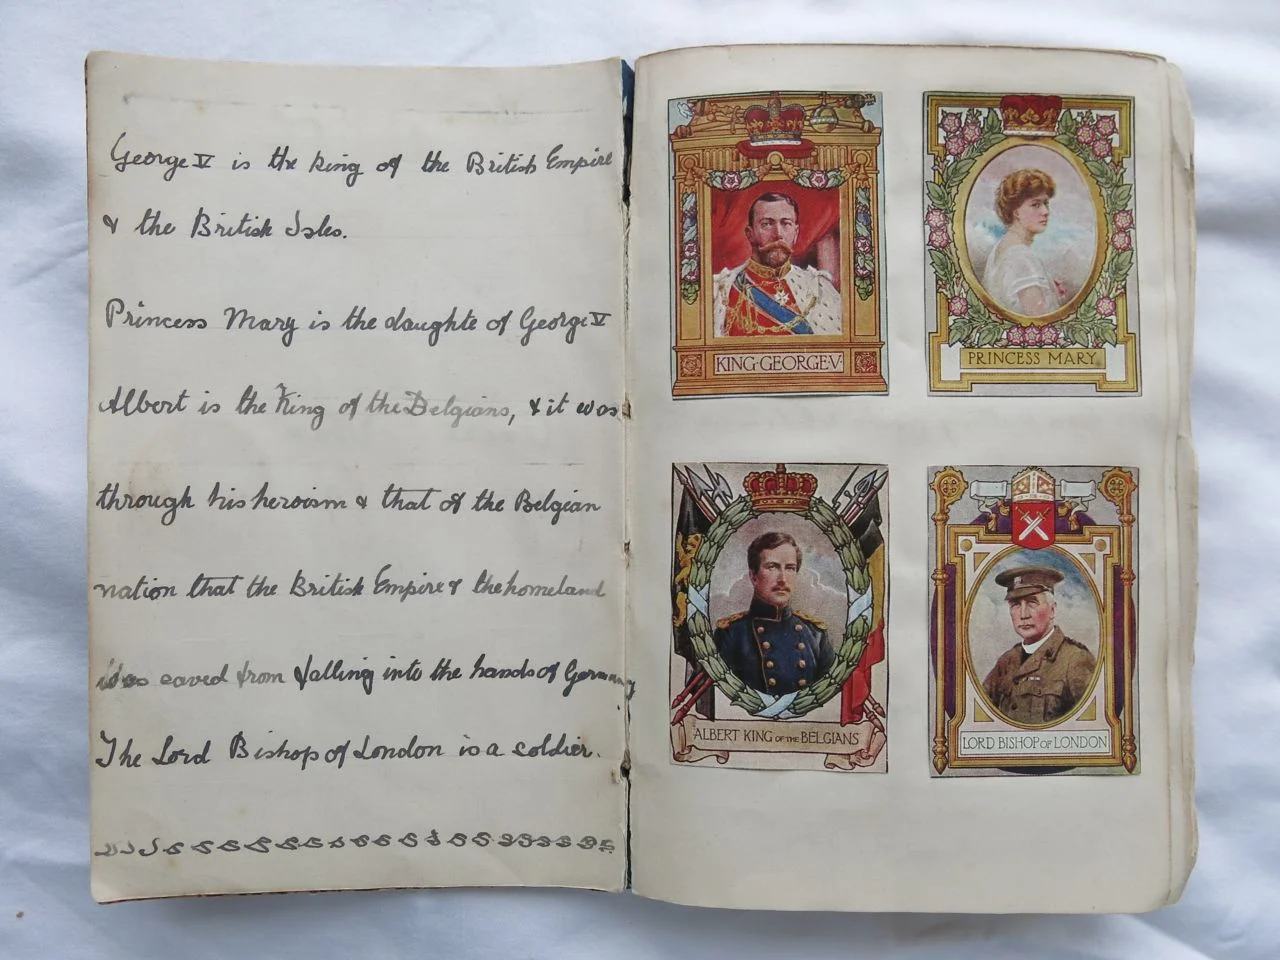 George V is the king of the British Empire
& the British Isles.
Princess Mary is the daughte of George V
Albert is the King of the Belgians, & it was
through his heroism & that of the Belgian
nation that the British Empire & the homeland
was saved from falling into the hands of Germany
The Lord Bishop of London is a soldier.
KING·GEORGE·V·
PRINCESS MARY
ALBERT KING OF THE BELGIANS
LORD BISHOP OF LONDON